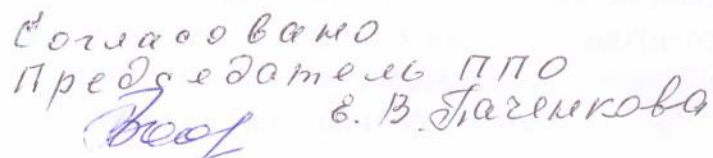 Согласовано
Председатель ППО
Е. В. Паченкова